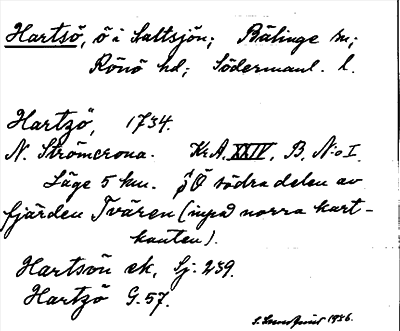 Hartsö, ö i Saltsjön; Bälinge sn;
Rönö hd; Södermanl. l.
Hartzö, 1734.
N. Strömcrona. Kr.A. XXIV, B, N:o I
Läge 5 km. Ö södra delen av
fjärden Tvären (inpå norra kart-
kanten).
Hartsön ek, Sj. 239.
Hartzö G. 57.
1936.